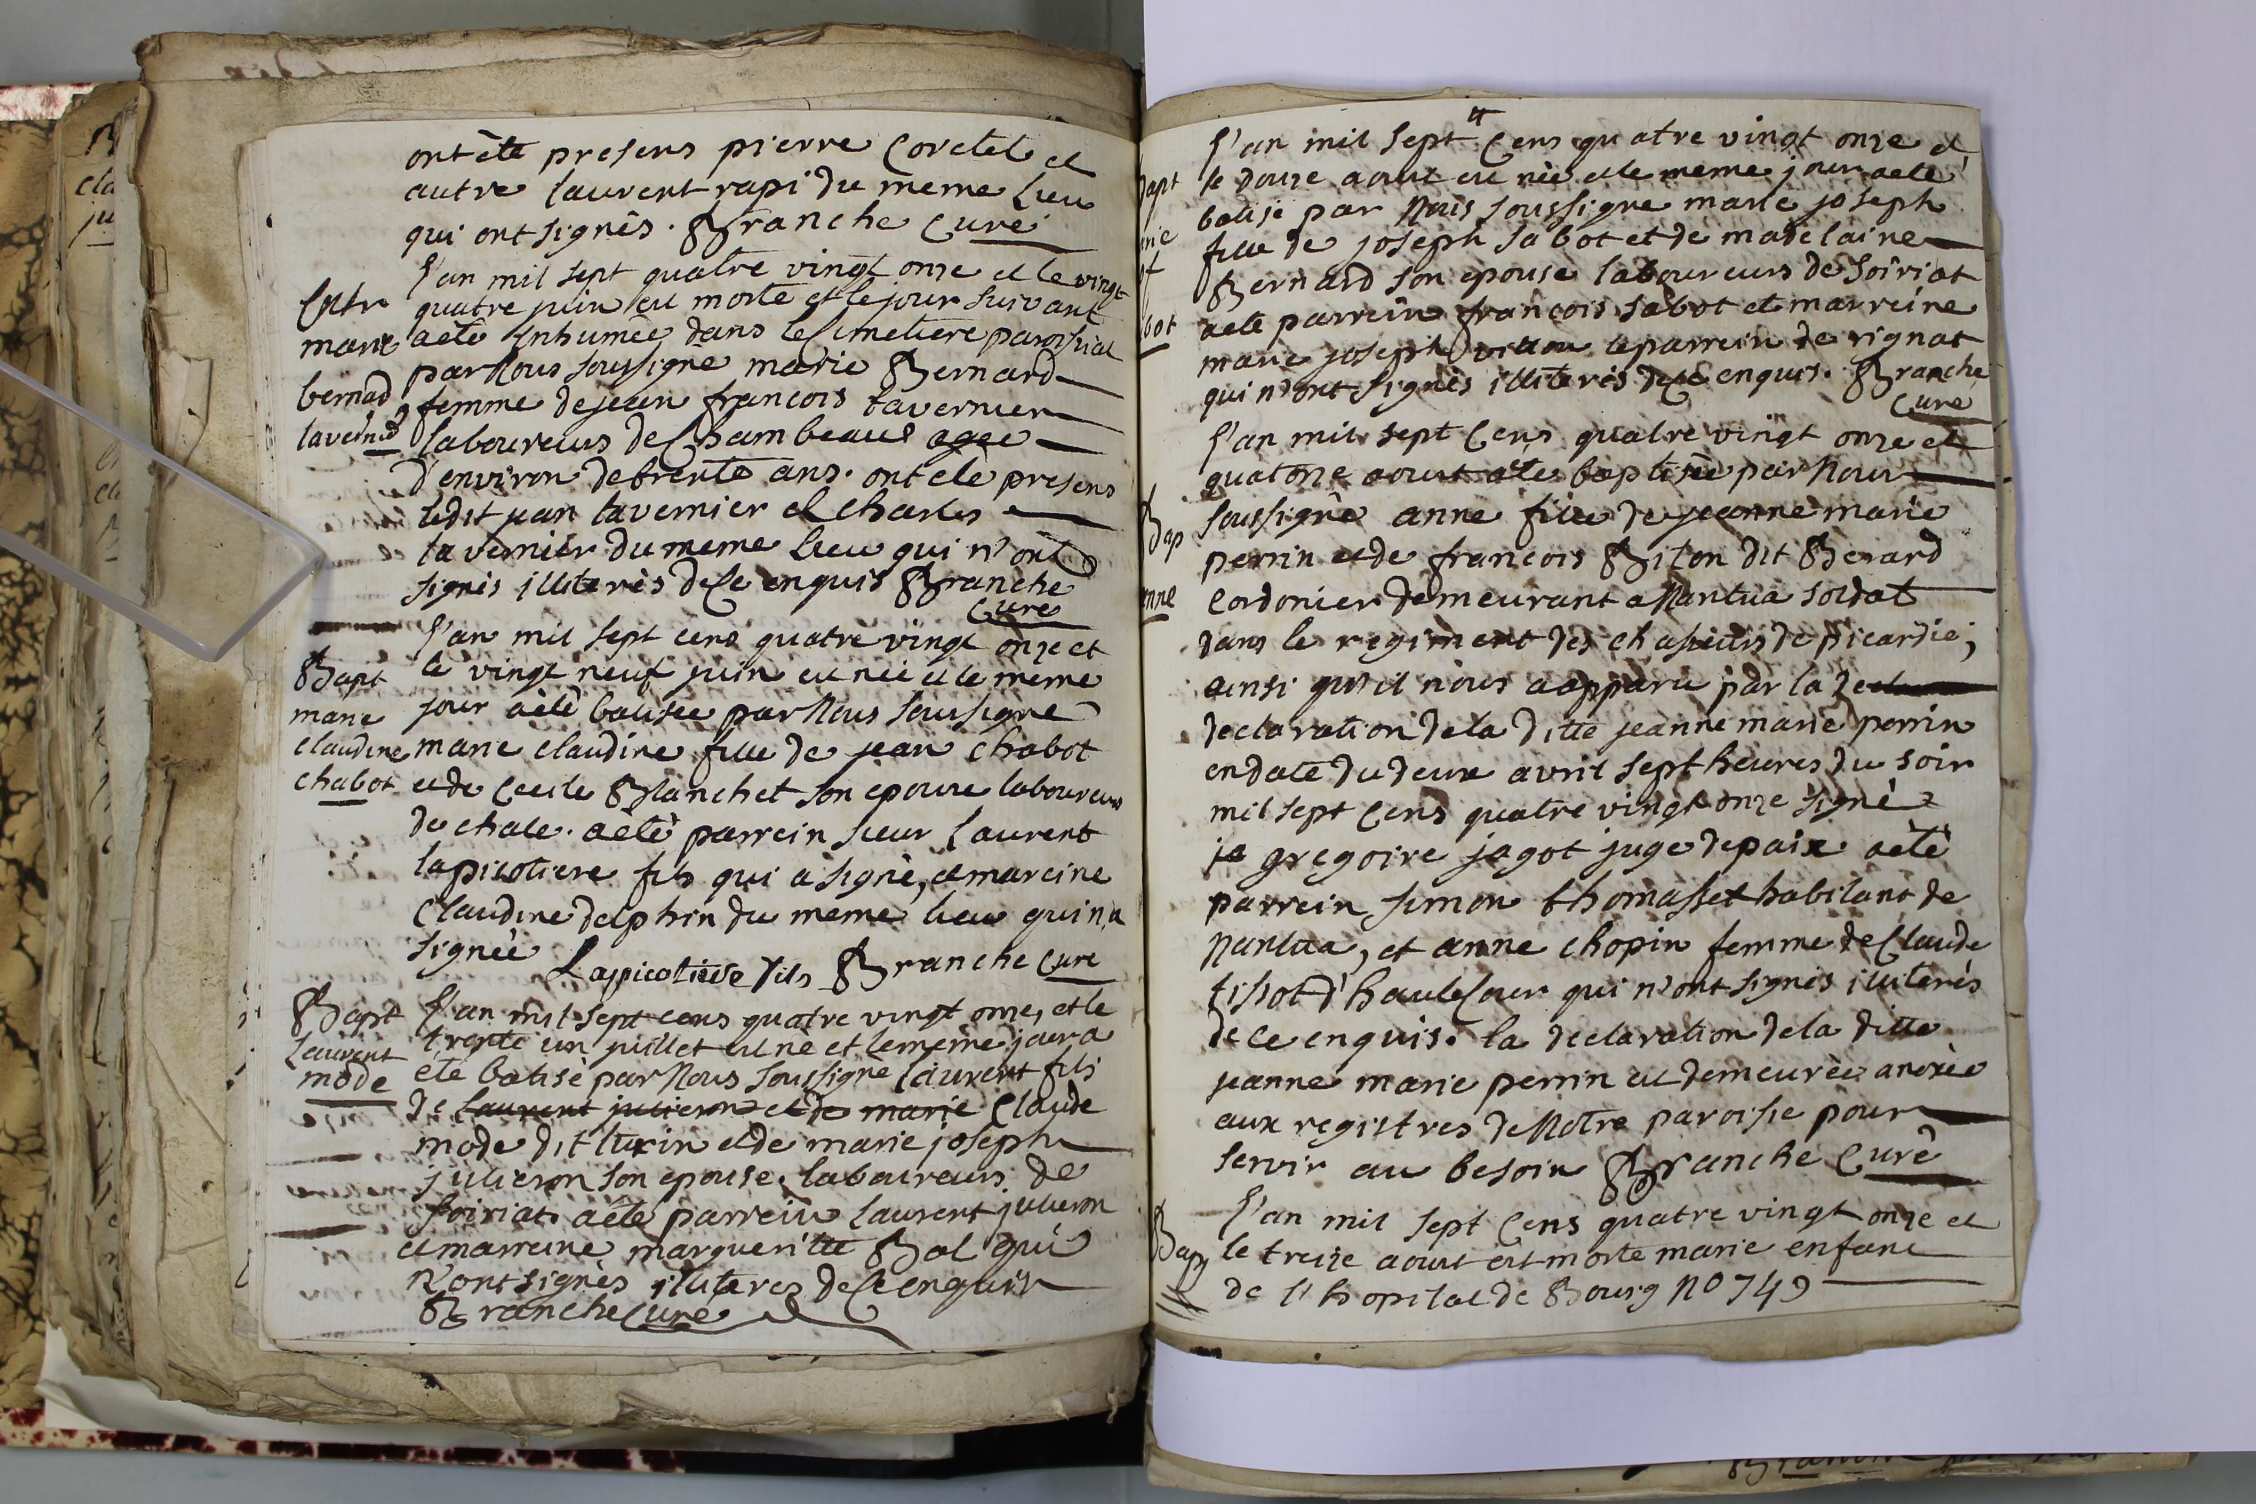 ont ètè presens pierre Cortel et
autre laurent rapi du meme Lieu
qui ont signès. Branche Curè
l'an mil sept quatre vingt onze et le vingt
Entr quatre juin est morte et le jour suivant
marie aetè Inhumèe dans le Cimetiere paroissial
bernad par Nous soussignè marie Bernard
femme de jean francois tavernier
tavernier laboureurs de Chambeaul agee
D'environ de trente ans. ont ete presens
ledit jean tavernier et Charles
tavernier du meme Lieu qui n'ont
signès illiterès de Ce enquis Branche
Curè
l'an mil sept cens quatre vingt onze et
Bapt le vingt neuf juin est nèè et le meme
marie jour aètè batisèe par Nous soussignè
claudine marie claudine fille de jean Chabot
chabot et de Cecile Blanchet son epouse laboureurs
de chale. aètè parrein sieur Laurent
lapicotiere fils qui a signè, et mareine
Claudine delphin du meme lieu qui n'a
signèè
Lapicotiere fils Branche Curè
Bapt l'an mil sept cens quatre vingt onze, et le
Laurent trente un juillet est nè et le meme jour a
mode ete batisè par Nous soussignè laurent fils
de laurent julieron et de marie Claude
mode dit lucin et de marie joseph
julieron son epouse, laboureurs de
soiriat. aètè parrein laurent julieron
et marreine marguerite Bal qui
N'ont signès illiteres de Ce enquis
Branche Curè
l'an mil sept Cens quatre vingt onze et
Bapt le douze aout est nèè et le meme jour aetè
batisè par Nous soussignè marie joseph
fille de joseph sabot et de madelaine
Bernard son epouse laboureurs de soiriat
bot aetè parrein francois sabot et marreine
marie joseph villon le parrein de rignat
qui n'ont signès illiterès de Ce enquis. Branche
Curè
l'an mil sept Cens quatre vingt onze et
quatorze aout aètè baptisèe par Nous
Bap soussignè anne fille de jeanne marie
perrin et de francois Biton dit Berard
anne Cordonier demeurant a Nantua soldat
dans le regiment des chasseurs de picardie;
ainsi qu'il nous a apparu par la decla
declaration de la ditte jeanne marie perrin
en date du deux avril sept heures du soir
mil sept Cens quatre vingt onze signè
je gregoire jagot juge de paix aètè
parrein, simon thomasset habitant de
Nantua, et anne chopin femme de Claude
tissot d'hauteCour qui n'ont signès illiterès
de Ce enquis. la declaration de la ditte
jeanne marie perrin est demeurèe anexèe
aux registres de Notre paroisse pour
servir au besoin Branche Curè
l'an mil sept Cens quatre vingt onze et
Bap le treize aout est morte marie enfant
de l'hopital de Bourg no 749